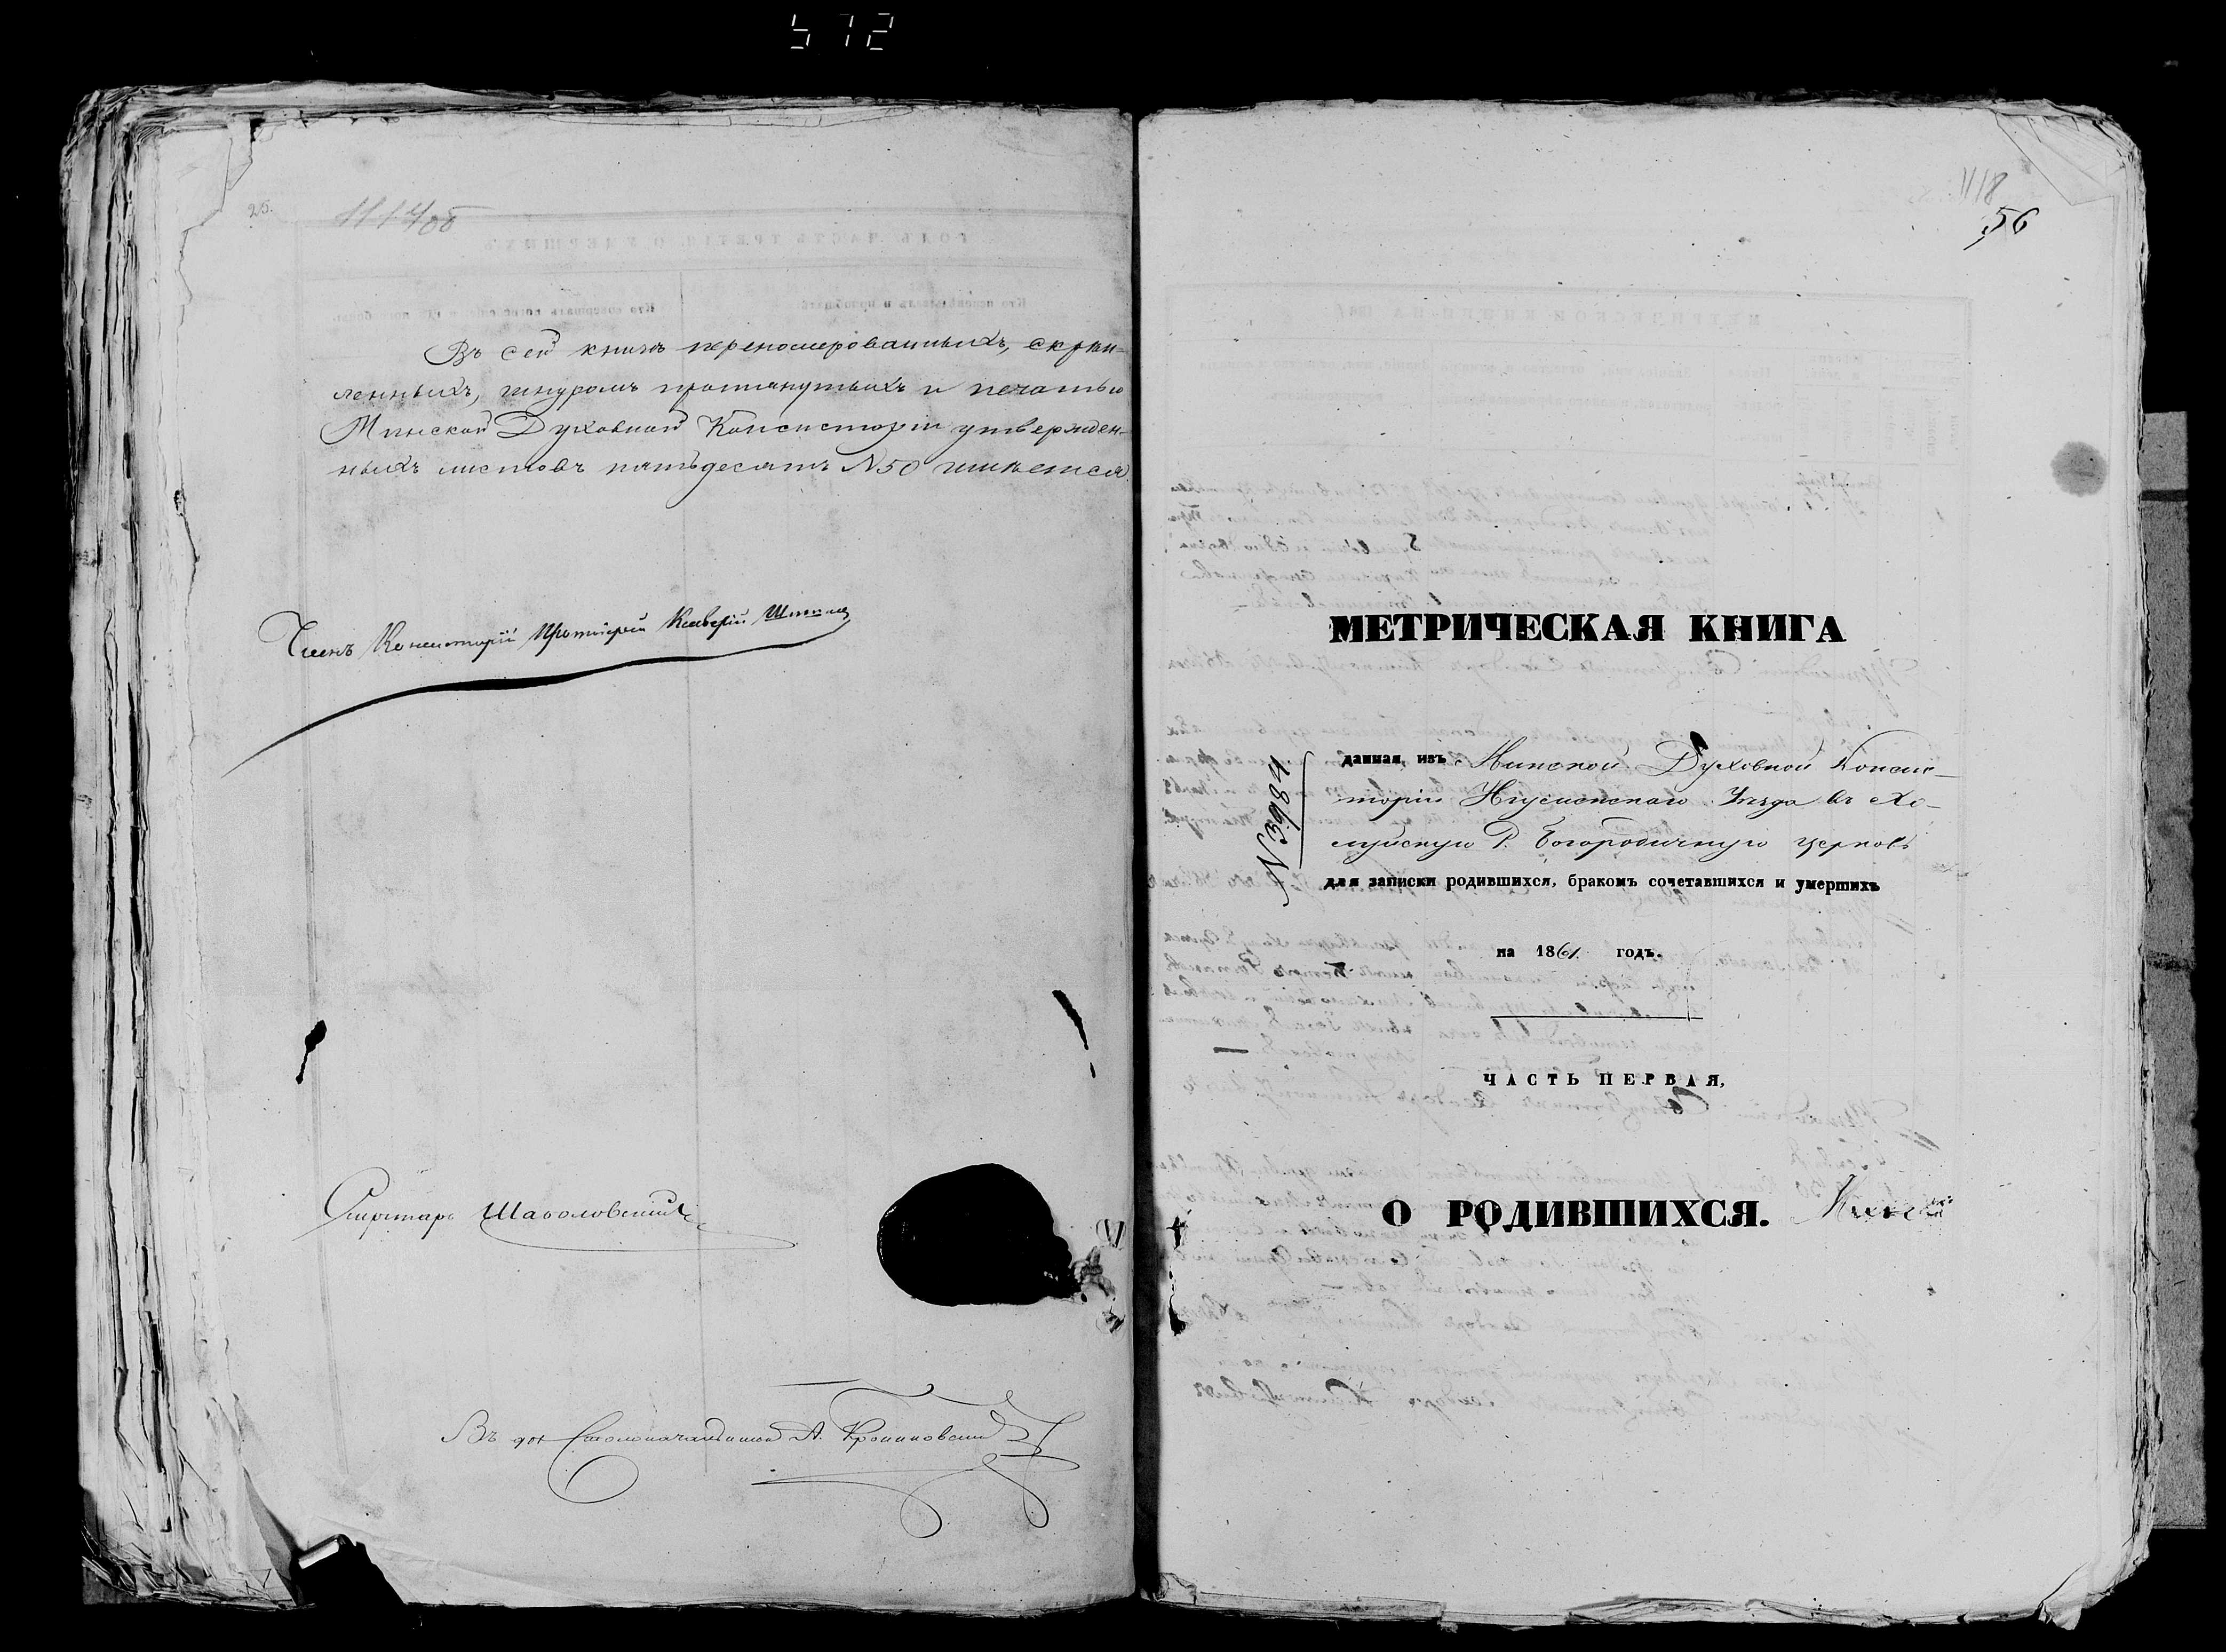 572
26.
1117об
Въ сей книгѣ перенемерованныхъ, скрѣп-
ленныхъ, шнуромъ протянутыхъ и печатью
Минской Духовной Консисторіи утвержден-
ныхъ листовъ пятьдесятъ N50 имѣется.
Членъ Консисторіи Протоіерей
Секретарь
Въ дол Столоначальника А.
1118
56
МЕТРИЧЕСКАЯ КНИГА
данная, изъ Минской Духовной Консис-
торіи Игуменскаго Уѣзда въ Хо-
луйскую Р. Богородичную церковь
для записки родившихся, бракомъ сочетавшихся и умершихъ
на 1861 годъ.
ЧАСТЬ ПЕРВАЯ,
О РОДИВШИХСЯ.